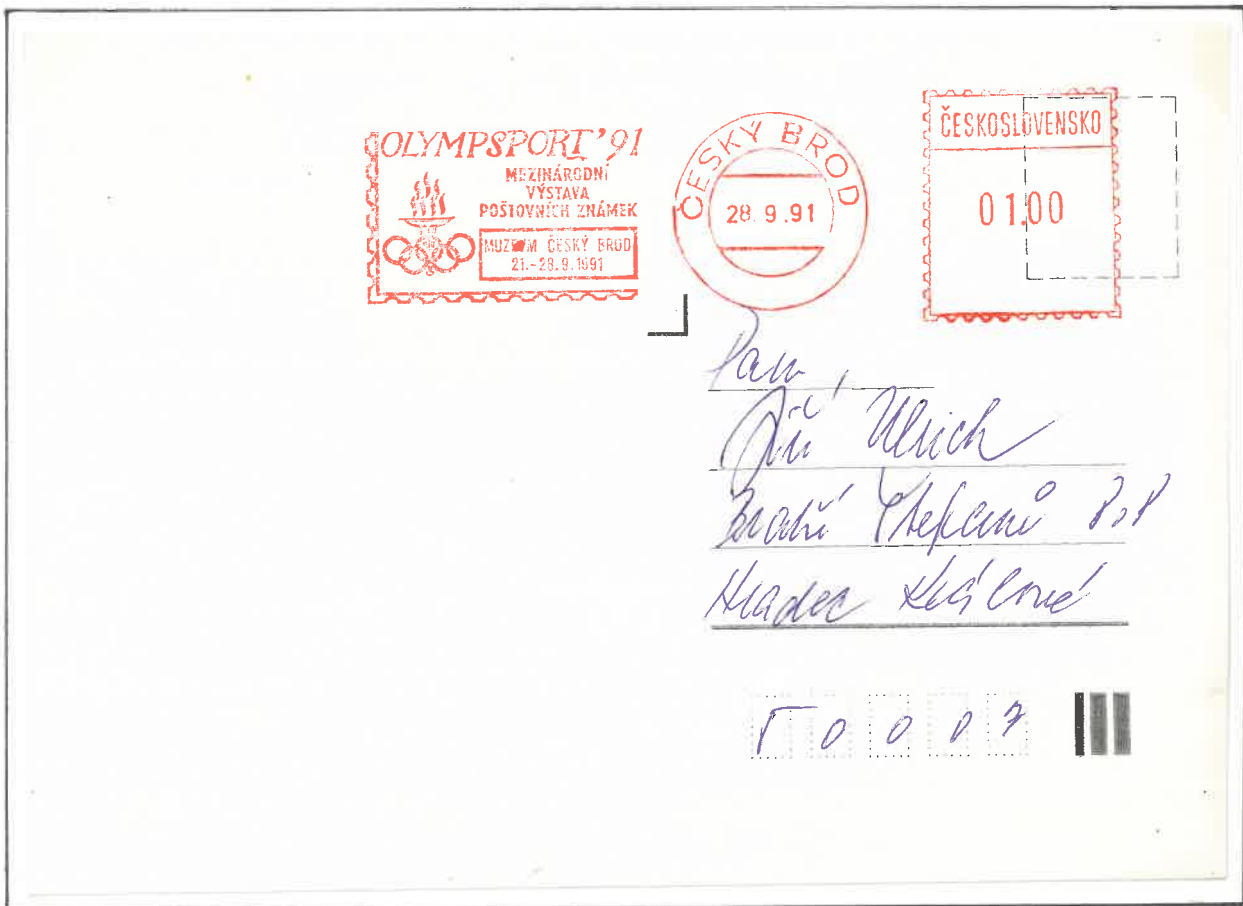 OLYMPSPORT '91
MEZINÁRODNÍ
VÝSTAVA
POŠTOVNÍCH ZNÁMEK
MUZEUM ČESKÝ BROD
21.-28.9.1991
ČESKÝ BROD
28.9.91
ČESKOSLOVENSKO
01,00
Pan
Jiří Ulrich
Bratří Štefanů
Hradec Králové